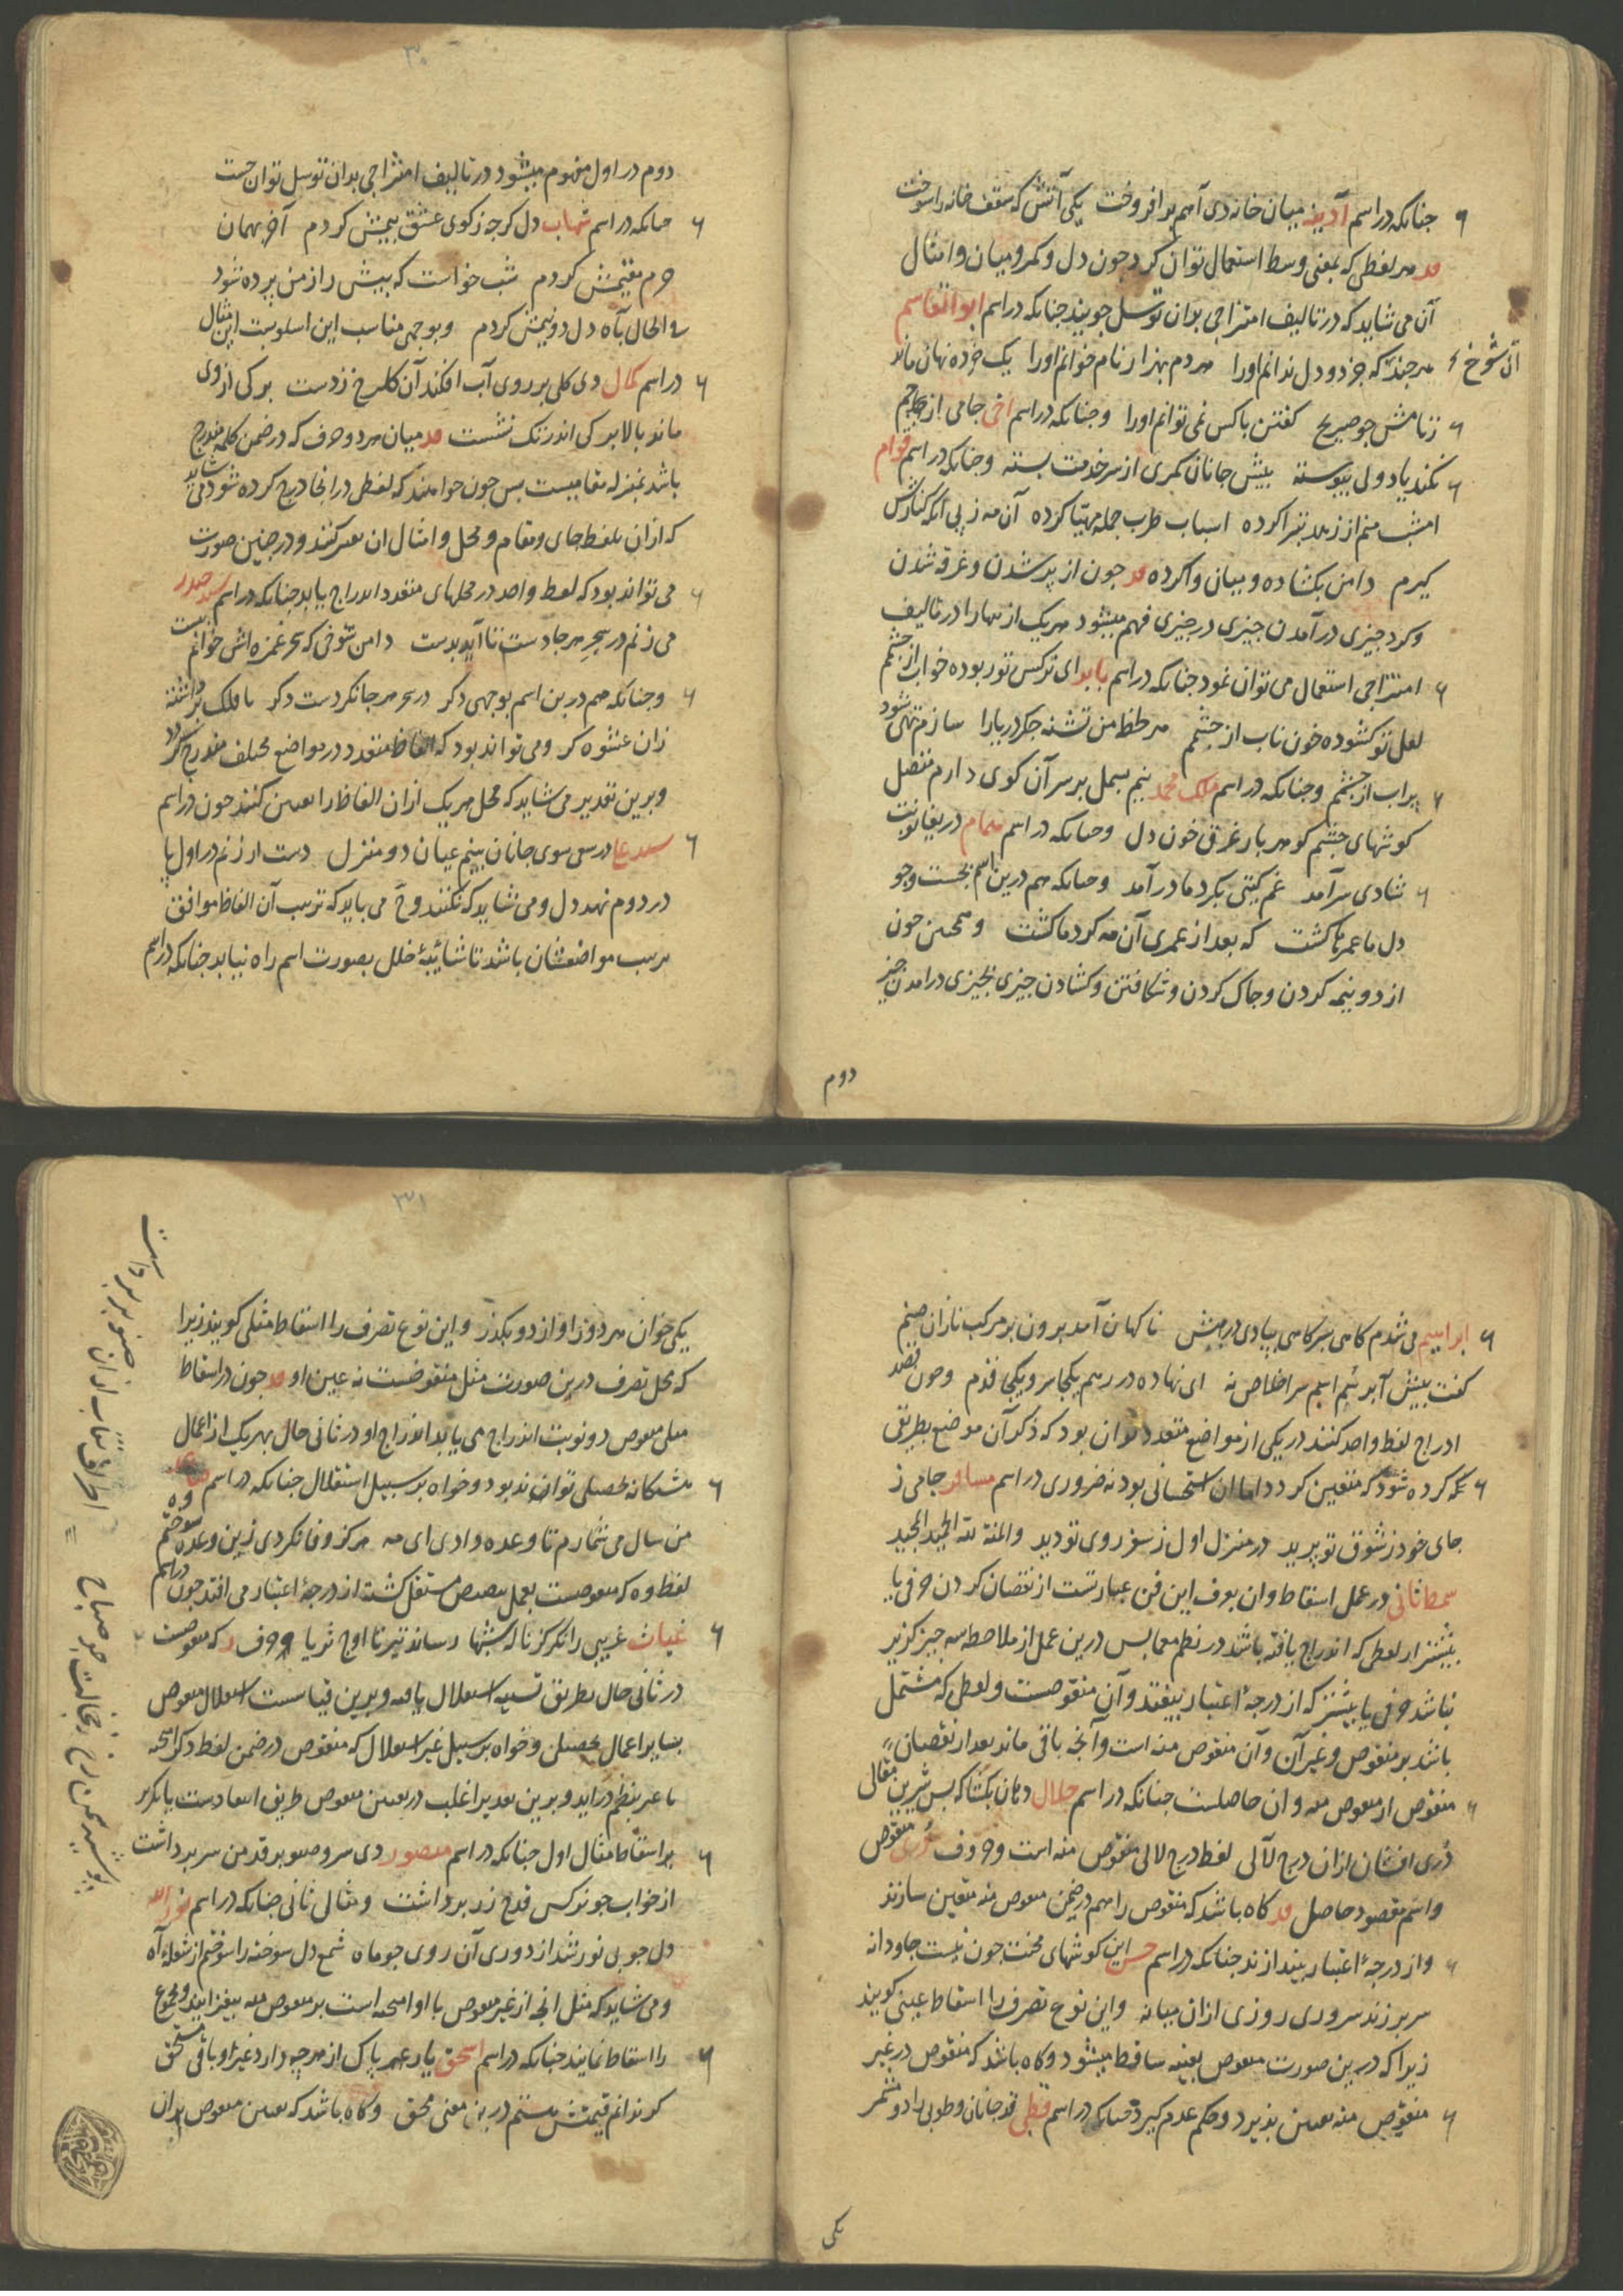 چنانکه در اسم آدینه میان خانه دی آهم برافروخت یکی آتش که سقف خانه را سوخت
هر لفظی که بمعنی وسط استعمال توان کرد چون دل و کمر و میان و امثال
آن می شاید که در تالیف امتزاجی بدان توسل جویند چنانکه در اسم ابو القاسم
آن شوخ
هر چند که جز دو دل ندانم اورا هر دم بهزار نام خوانم اورا یک خرده نهان ماند
ز نامش چو صریح گفتن با کس نمی توانم اورا و چنانکه در اسم اخی جامی از
نکند یاد ولی پیوسته پیش جانان کمری از سر خدمت بسته و چنانکه در اسم قوام
امشب منم از زهد تبرا کرده اسباب طرب جمله مهیّا کرده آن مه ز پی آنکه کنارش
گیرم دامن بکشاده و میان وا کرده چون از پر شدن و غرقه شدن
و کرد چیزی در آمدن چیزی در چیزی فهم میشود هر یک از اینها را در تالیف
امتزاجی استعمال می توان نمود چنانکه در اسم بابو ای نرکس تو ربوده خواب از چشمم
لعل تو کشوده خون ناب از چشمم هر لحظه من تشنه جکر دریا را سازم تهی
پر آب از چشمم و چنانکه در اسم ملک محمد نیم بسمل بر سر آن کوی دارم متصل
کوشهای چشم کو هر بار غرق خون دل و چنانکه در اسم همام دریغا نوبت
شادی سر آمد غم کیتی بکرد ما در آمد و چنانکه هم درین اسم بجست و جو
دل ما عمرها کشت که بعد از عمری آن مه کرد ما کشت و همچنین چون
از دو نیمه کردن و چاک کردن و شکافتن و کشادن چیزی بچیزی در آمدن چیز
دوم
۳۰
دوم در اول مفهوم میشود در تالیف امتزاجی بدان توسل توان جست
چنانکه در اسم شهاب دل کرچه ز کوی عشق بیمش کردم آخر بهمان
حرم مقیمش کردم شب خواست که پیش راز من پرده شود
فی الحال بآه دل دو نیمش کردم و بوجهی مناسب این اسلوبست این مثال
در اسم کمال دی کلی بر روی آب افکند آن کلرخ ز دست برکی از وی
ماند بالا برکی اندر تک نشست میان هر دو حرف که در ضمن کلمه مندرج
باشد بمنزله مقامیست پس چون خواهند که لفظی در انجا درج کرده شود می شاید
که از آن بلفظ جای و مقام و محل و امثال ان تعبیر کنند و در چنین صورت
می تواند بود که لفظ واحد در محلهای متعدد اندراج یابد چنانکه در اسم صدر
می زنم در سحر هر جا دست تا آید بدست دامن شوخی که سحر غمزه اش خوابم
و چنانکه هم درین اسم بوجهی دکر در سحر هر جا نکردست دکر با ملک
زان عشوه کر و می تواند بود که الفاظ متعدد در مواضع مختلف مندرج کردد
و برین تقدیر می شاید که محل هر یک از ان الفاظ را تعیین کنند چون در اسم
در سعی سوی جانان بینم عیان دو منزل دست ار زنم در اول پا
در دوم نهد دل و می شاید که نکنند و ح می باید که ترتیب آن الفاظ موافق
ترتیب مواضعشان باشد تا شائبهٔ خلل بصورت اسم راه نیابد چنانکه در اسم
ابراهیم می شدم کاهی بسر کاهی بپا دی در رهش ناکهان آمد برون بر مرکب ناز آن صنم
کفت پیش آر نئم اهم سر اخلاص نه ای نهاده در رهم یکجا سر و یکجا قدم و چون قصد
ادراج لفظ واحد کنند در یکی از مواضع متعدد توان بود که ذکر آن موضع بطریقی
کرده شود که متعین کردد اما ان استحسانی بود نه ضروری در اسم مسافر جامی ز
جای خود ز شوق تو پرید در منزل اول ز سفر روی تو دید والمنة لله الحمید المجید
نمط ثانی در عمل اسقاط و ان بعرف این فن عبارتست از نقصان کردن حرفی یا
بیشتر از لفظی که اندراج یافته باشد در نظم معما پس درین عمل از ملاحظه سه چیز کزیر
نباشد حرفی یا بیشتر که از درجهٔ اعتبار بیفتد و آن منقوصست و لفظی که مشتمل
باشد بر منقوص و غیر آن و آن منقوص منه است و آنچه باقی ماند بعد از نقصان
منقوص از منقوص منه و ان حاصلست چنانکه در اسم جلال دهان بکشا که بس شیرین مقالی
دُری افشان از ان درج لآلی لفظ درج لالی منقوص منه است و حروف منقوص
و اسم مقصود حاصل کاه باشد که منقوص را هم در ضمن منقوص منه متعین سازند
و از درجهٔ اعتبار بیندازند چنانکه در اسم حسن این کوشهای محنت چون نیست جاودانه
سر بر زند سروری روزی از ان میانه و این نوع تصرف را اسقاط عینی کویند
زیرا که درین صورت منقوص بعینه ساقط میشود و کاه باشد که منقوص در غیر
منقوص منه تعیین پذیرد و حکم عدم کیرد چنانکه در اسم قطبی قد جانان و طوبی را دو مثمر
یکی
۳۱
یکی خوان هر دو ز او از دو بکذر و این نوع تصرف را اسقاط مثلی کویند زیرا
که محل تصرف درین صورت مثل منقوصست نه عین او چون در اسقاط
مثلی منقوص دو نوبت اندراج می یابد اندراج او در ثانی حال بهر یک از اعمال
مشکانه تحصیلی تواند بود و خواه بر سبیل استقلال چنانکه در اسم
من سال می شمارم تا وعده دادی ای مه هرکز وفا نکردی زین وعده سوختم
لفظ وه که منقوصست بعمل تنصیص مستقل کشته از درجهٔ اعتبار می افتد چون در اسم
غیاث غریبی را نکر کز ناله شبها رساند تیر تا اوج ثریا حروف ر که منقوصست
در ثانی حال بطریق تسمیه استقلال یافته و برین قیاسست استقلال منقوص
بسایر اعمال تحصیلی و خواه بر سبیل غیر استقلال که منقوص در ضمن لفظ دکر
با غیر بنظم در اید و برین تقدیر اغلب در تعیین منقوص طریق انتقادست یا تکریر
بر اسقاط مثال اول چنانکه در اسم منصور دی سرو صنوبر قد من سر برداشت
از خواب چو نرکس قدح زر برداشت و مثال ثانی چنانکه در اسم نورالله
دل چو بی نور شد از دوری آن روی چو ماه شمع دل سوخته را سوختم از شعلهٔ آه
و می شاید که مثل انچه از غیر منقوص با او است بر منقوص منه بیفزایند و مجموع
را اسقاط نمایند چنانکه در اسم اسحق یار عهد پاک از هرچه دارد غیر او باقی
کو ندانم قیمتش هستم درین معنی محق و کاه باشد که تعیین منقوص